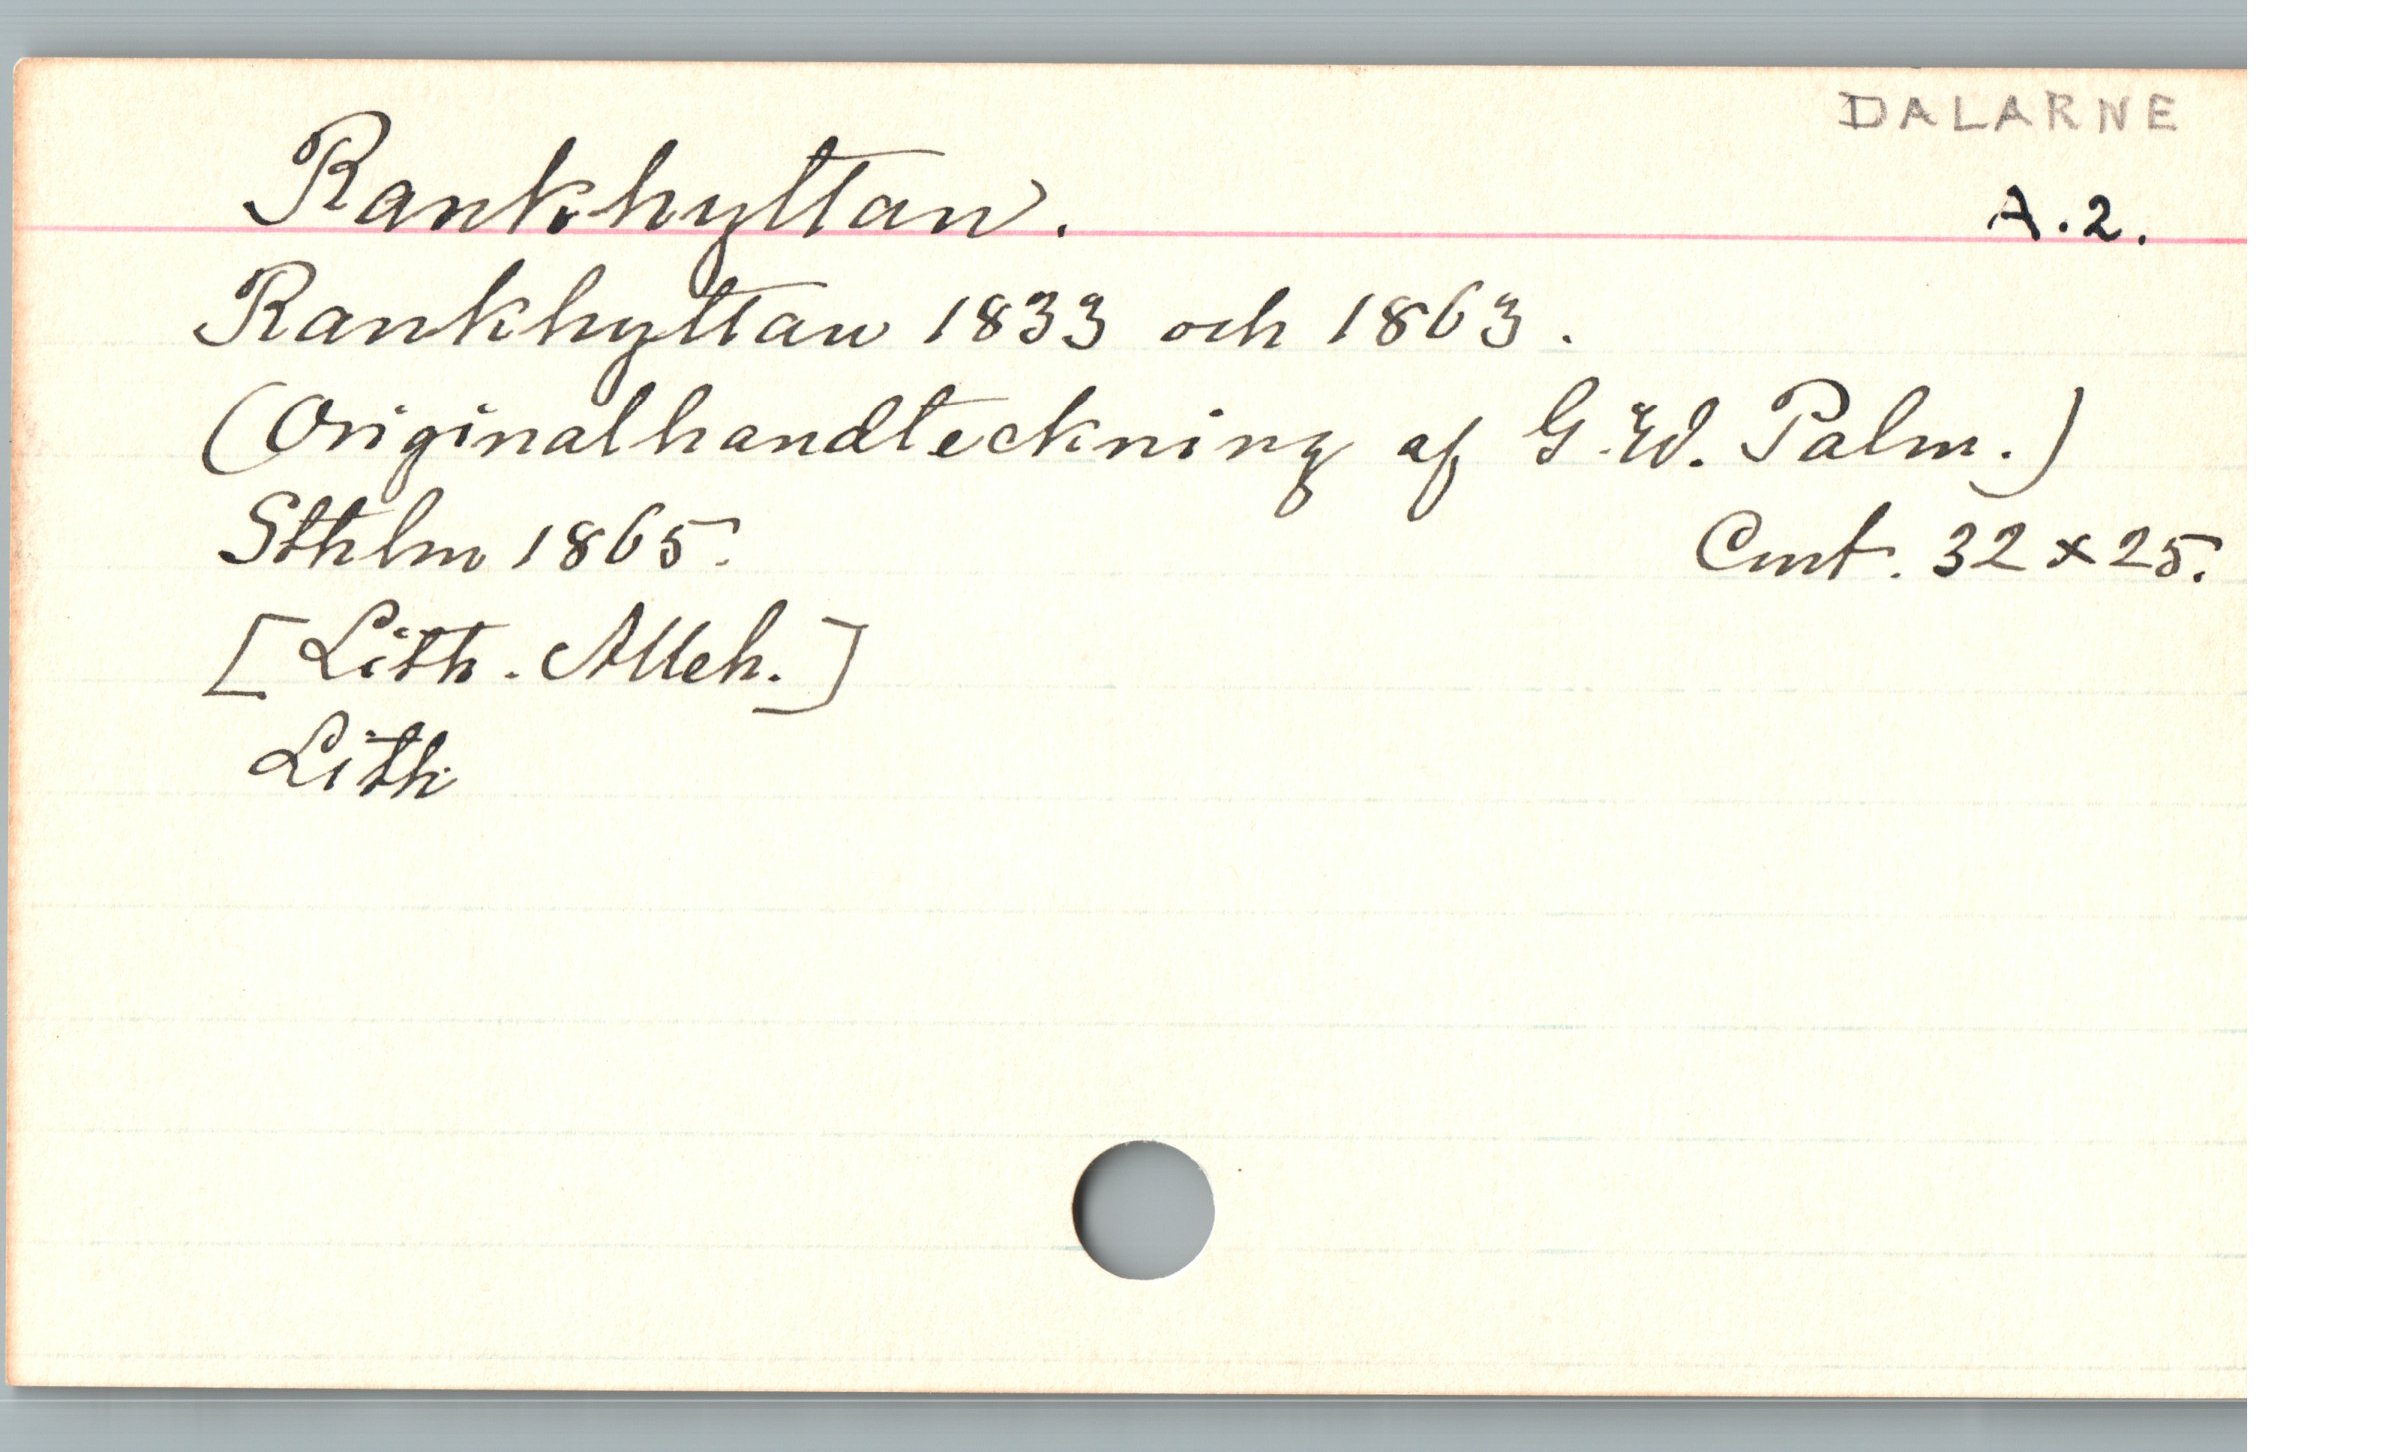 DALARNE
Rankhyttan. A.2.
Rankhyttan 1833 och 1863.
(Originalhandteckning af G. W. Palm.)
Sthlm 1865. Cmt. 32 x 25.
[Lith. Alleh.]
Lith